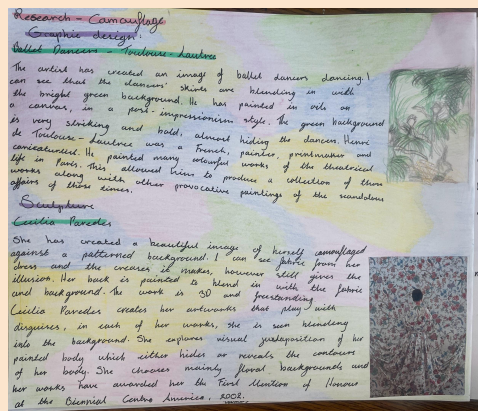 Research - Camouflage
Graphic design:
Ballet Dancers - Toulouse-Lautrec
The artist has created an image of ballet dancers dancing. I
can see that the dancers' skirts are blending in with
the bright green background. He has painted in oils on
a canvas, in a post-impressionism style. The green background
is very striking and bold, almost hiding the dancers. Henri
de Toulouse-Lautrec was a French, painter, printmaker and
caricaturised. He painted many colourful works of the theatrical
life in Paris. This allowed him to produce a collection of these
works along with other provocative paintings of the scandalous
affairs of those times.
Sculpture
Cecilia Paredes
She has created a beautiful image of herself camouflaged
against a patterned background. I can see fabric from her
dress and the creases it makes, however still gives the
illusion. Her back is painted to blend in with the fabric
and background. The work is 3D and freestanding
Cecilia Paredes creates her artworks that play with
disguises, in each of her works, she is seen blending
into the background. She explores visual juxtaposition of her
painted body which either hides or reveals the contours
of her body. She chooses mainly floral backgrounds and
her works have awarded her the First Mention of Honour
at the Biennial Centro America, 2002.